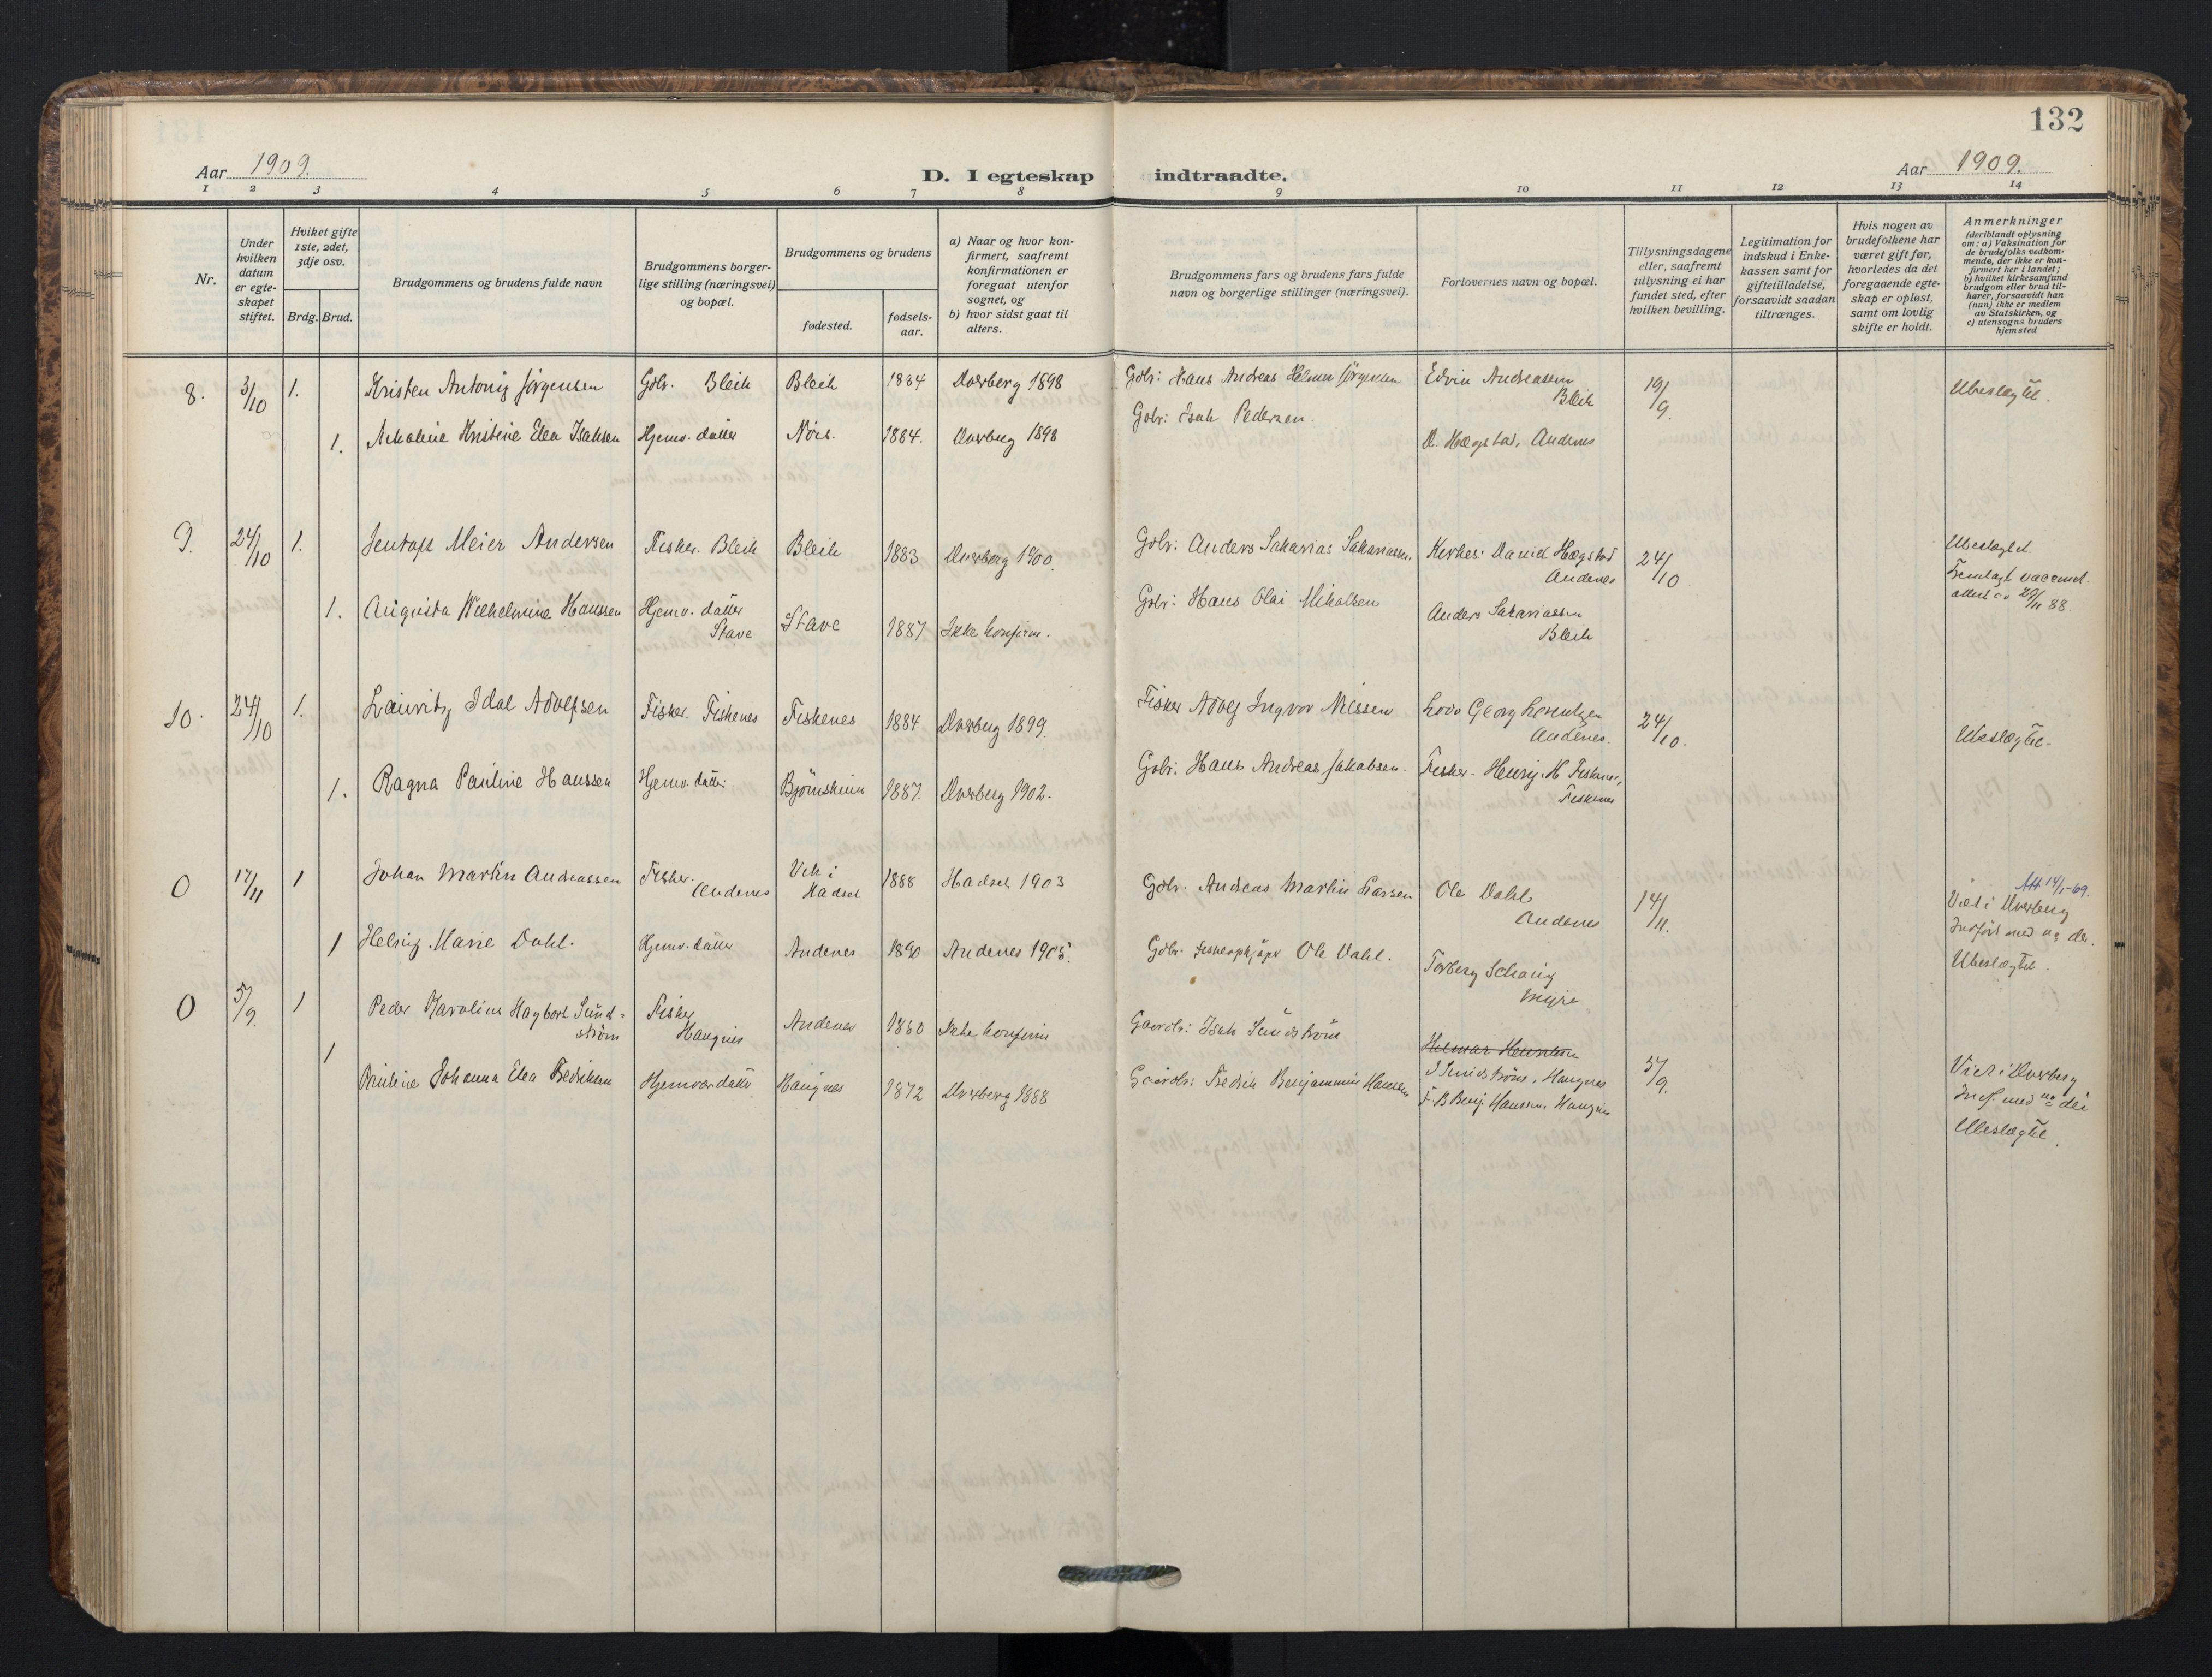 132
Aar 1909.
D. I egteskap indtraadte.
Aar 1909.
1 2 3 4 5 6 7 8 9 10 11 12 13 14
Nr.
Under
hvilken
datum
er egte-
skapet
stiftet.
Hviket gifte
1ste, 2det,
3dje osv.
Brdg. Brud.
Brudgommens og brudens fulde navn
Brudgommens borger-
lige stilling (næringsvei)
og bopæl.
Brudgommens og brudens
fødested.
fødsels-
aar.
a) Naar og hvor kon-
firmert, saafremt
konfirmationen er
foregaat utenfor
sognet, og
b) hvor sidst gaat til
alters.
Brudgommens fars og brudens fars fulde
navn og borgerlige stillinger (næringsvei).
Forlovernes navn og bopæl.
Tillysningsdagene
eller, saafremt
tillysning ei har
fundet sted, efter
hvilken bevilling.
Legitimation for
indskud i Enke-
kassen samt for
giftetilladelse,
forsaavidt saadan
tiltrænges.
Hvis nogen av
brudefolkene har
været gift før,
hvorledes da det
foregaaende egte-
skap er opløst,
samt om lovlig
skifte er holdt.
Anmerkninger
(deriblandt oplysning
om: a) Vaksination for
de brudefolks vedkom-
mende, der ikke er kon-
firmert her i landet;
b) hvilket kirkesamfund
brudgom eller brud til-
hører, forsaavidt han
(hun) ikke er medlem
av Statskirken, og
c) utensogns bruders
hjemsted
8. 3/10 1. Kristen Antonij Jørgensen Gdbr. Bleik Bleik 1884 Dverberg 1898 Gdbr: Hans Andreas Helmer Jørgensen Edvin Andreassen Bleik 19/9. Ubeslægtet.
1. Nikoline Kristine Elea Isaksen Hjemv. datter Nøss. 1884. Dverberg 1898 Gdbr: Isak Pedersen. D. Hægstad, Andenes
9. 24/10 1. Jentoft Meier Andersen Fisker. Bleik Bleik 1883 Dverberg 1900. Gdbr: Anders Sakarias Sakariassen. Kirkes: David Hægstad Andenes 24/10 Ubeslægtet. Fremlagt vaccinat. attest av 20/11 88.
1. Augusta Wilhelmine Hanssen Hjemv. datter Stave Stave 1887 Ikke konfirm. Gdbr: Hans Olai Nikolsen Anders Sakariassen Bleik
10. 24/10 1. Lauritz Idal Adolfsen Fisker. Fiskenes Fiskenes 1884 Dverberg 1899. Fisker Adolf Ingvor Nilssen Lods Georg Lorentzen Andenes. 24/10. Ubeslægtet.
1. Ragna Pauline Hanssen Hjemv. datter Bjørnskinn 1887. Dverberg 1902. Gdbr: Hans Andreas Jakobsen. Fisker. Fiskenes
0 14/11 1 Johan Martin Andreassen Fisker. Andenes Vik i Hadsel 1888 Hadsel 1903 Gdbr. Andreas Martin Larssen Ole Dahl Andenes 14/11. Att 14/1-69. Viet i Dverberg Indført med no der. Ubeslægtet.
1 Helvig Marie Dahl. Hjemv. datter Andenes 1890 Andenes 1905. Gdbr. fiskeopkjøper Ole Dahl. Torberg Schang Myre
0 5/9. 1 Peder Karolius Hagbart Sund-
strøm Fisker Haugnes Andenes 1860 Ikke konfirm Gaardbr: Isak Sundstrøm
1 Pauline Johanna Elea Fredriksen Hjemvær. datter Haugnes 1872 Dverberg 1888 Gaardbr: Fredrik Benjamin Hanssen I Sundstrøm, Haugnes F. B Benj Hanssen, Haugnes 5/9. Viet i Dverberg Indf. med no der Ubeslægtet.